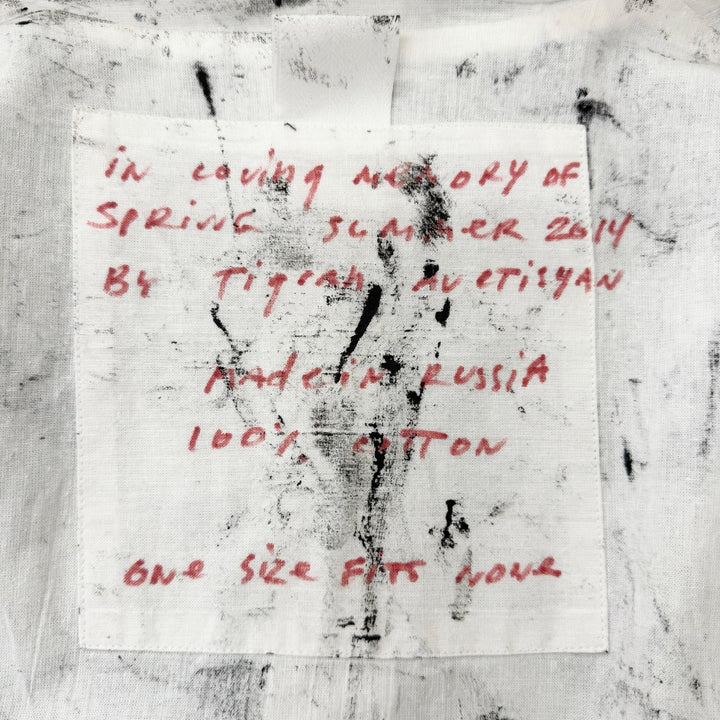 in loving MEMORY OF
SPRiNG SUMMER 2014
BY Tigran AvetisyAN
MAde iN RUSSiA
100% COTTON
ONe Size FiTS NONe